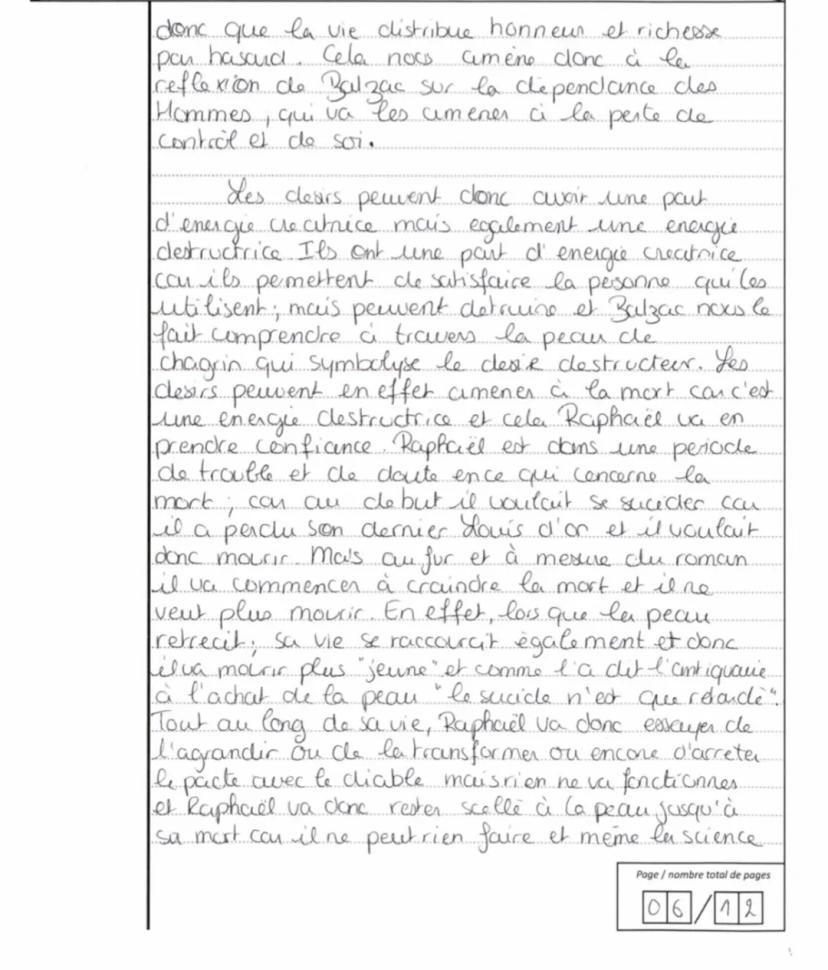 donc que la vie distribue honneur et richesse
par hasard. Cela nous amène donc à la
reflexion de Balzac sur la dependance des
Hommes, qui va les amener à la perte de
contrôl et de soi.
Les desirs peuvent donc avoir une part
d'energie creatrice mais egalement une energie
destructrice Ils ont une part d'energie creatrice
car ils permettent de satisfaire la personne qui les
utilisent; mais peuvent detruire et Balzac nous le
fait comprendre à travers la peau de
chagrin qui symbolyse le desir destructeur. Les
desirs peuvent en effet amener à la mort car c'est
une energie destructrice et cela Raphaël va en
prendre confiance. Raphaël est dans une periode
de trouble et de doute ence qui concerne la
mort; car au debut il voulait se sucider car
il a perdu son dernier Louis d'or et il voulait
donc mourir. Mais au fur et à mesure du roman
il va commencer à craindre la mort et il ne
veut plus mourir. En effet, lors que la peau
retrecit; sa vie se raccourcit également et donc
il va mourir plus "jeune" et comme l'a dit l'antiquaire
à l'achat de la peau "le sucide n'est que retardé".
Tout au long de sa vie, Raphaël va donc essayer de
l'agrandir ou de la transformer ou encore d'arreter
le pacte avec le diable mais rien ne va fonctionner
et Raphaël va donc rester scellé à la peau jusqu'à
sa mort car il ne peut rien faire et même la science
Page / nombre total de pages
06/12